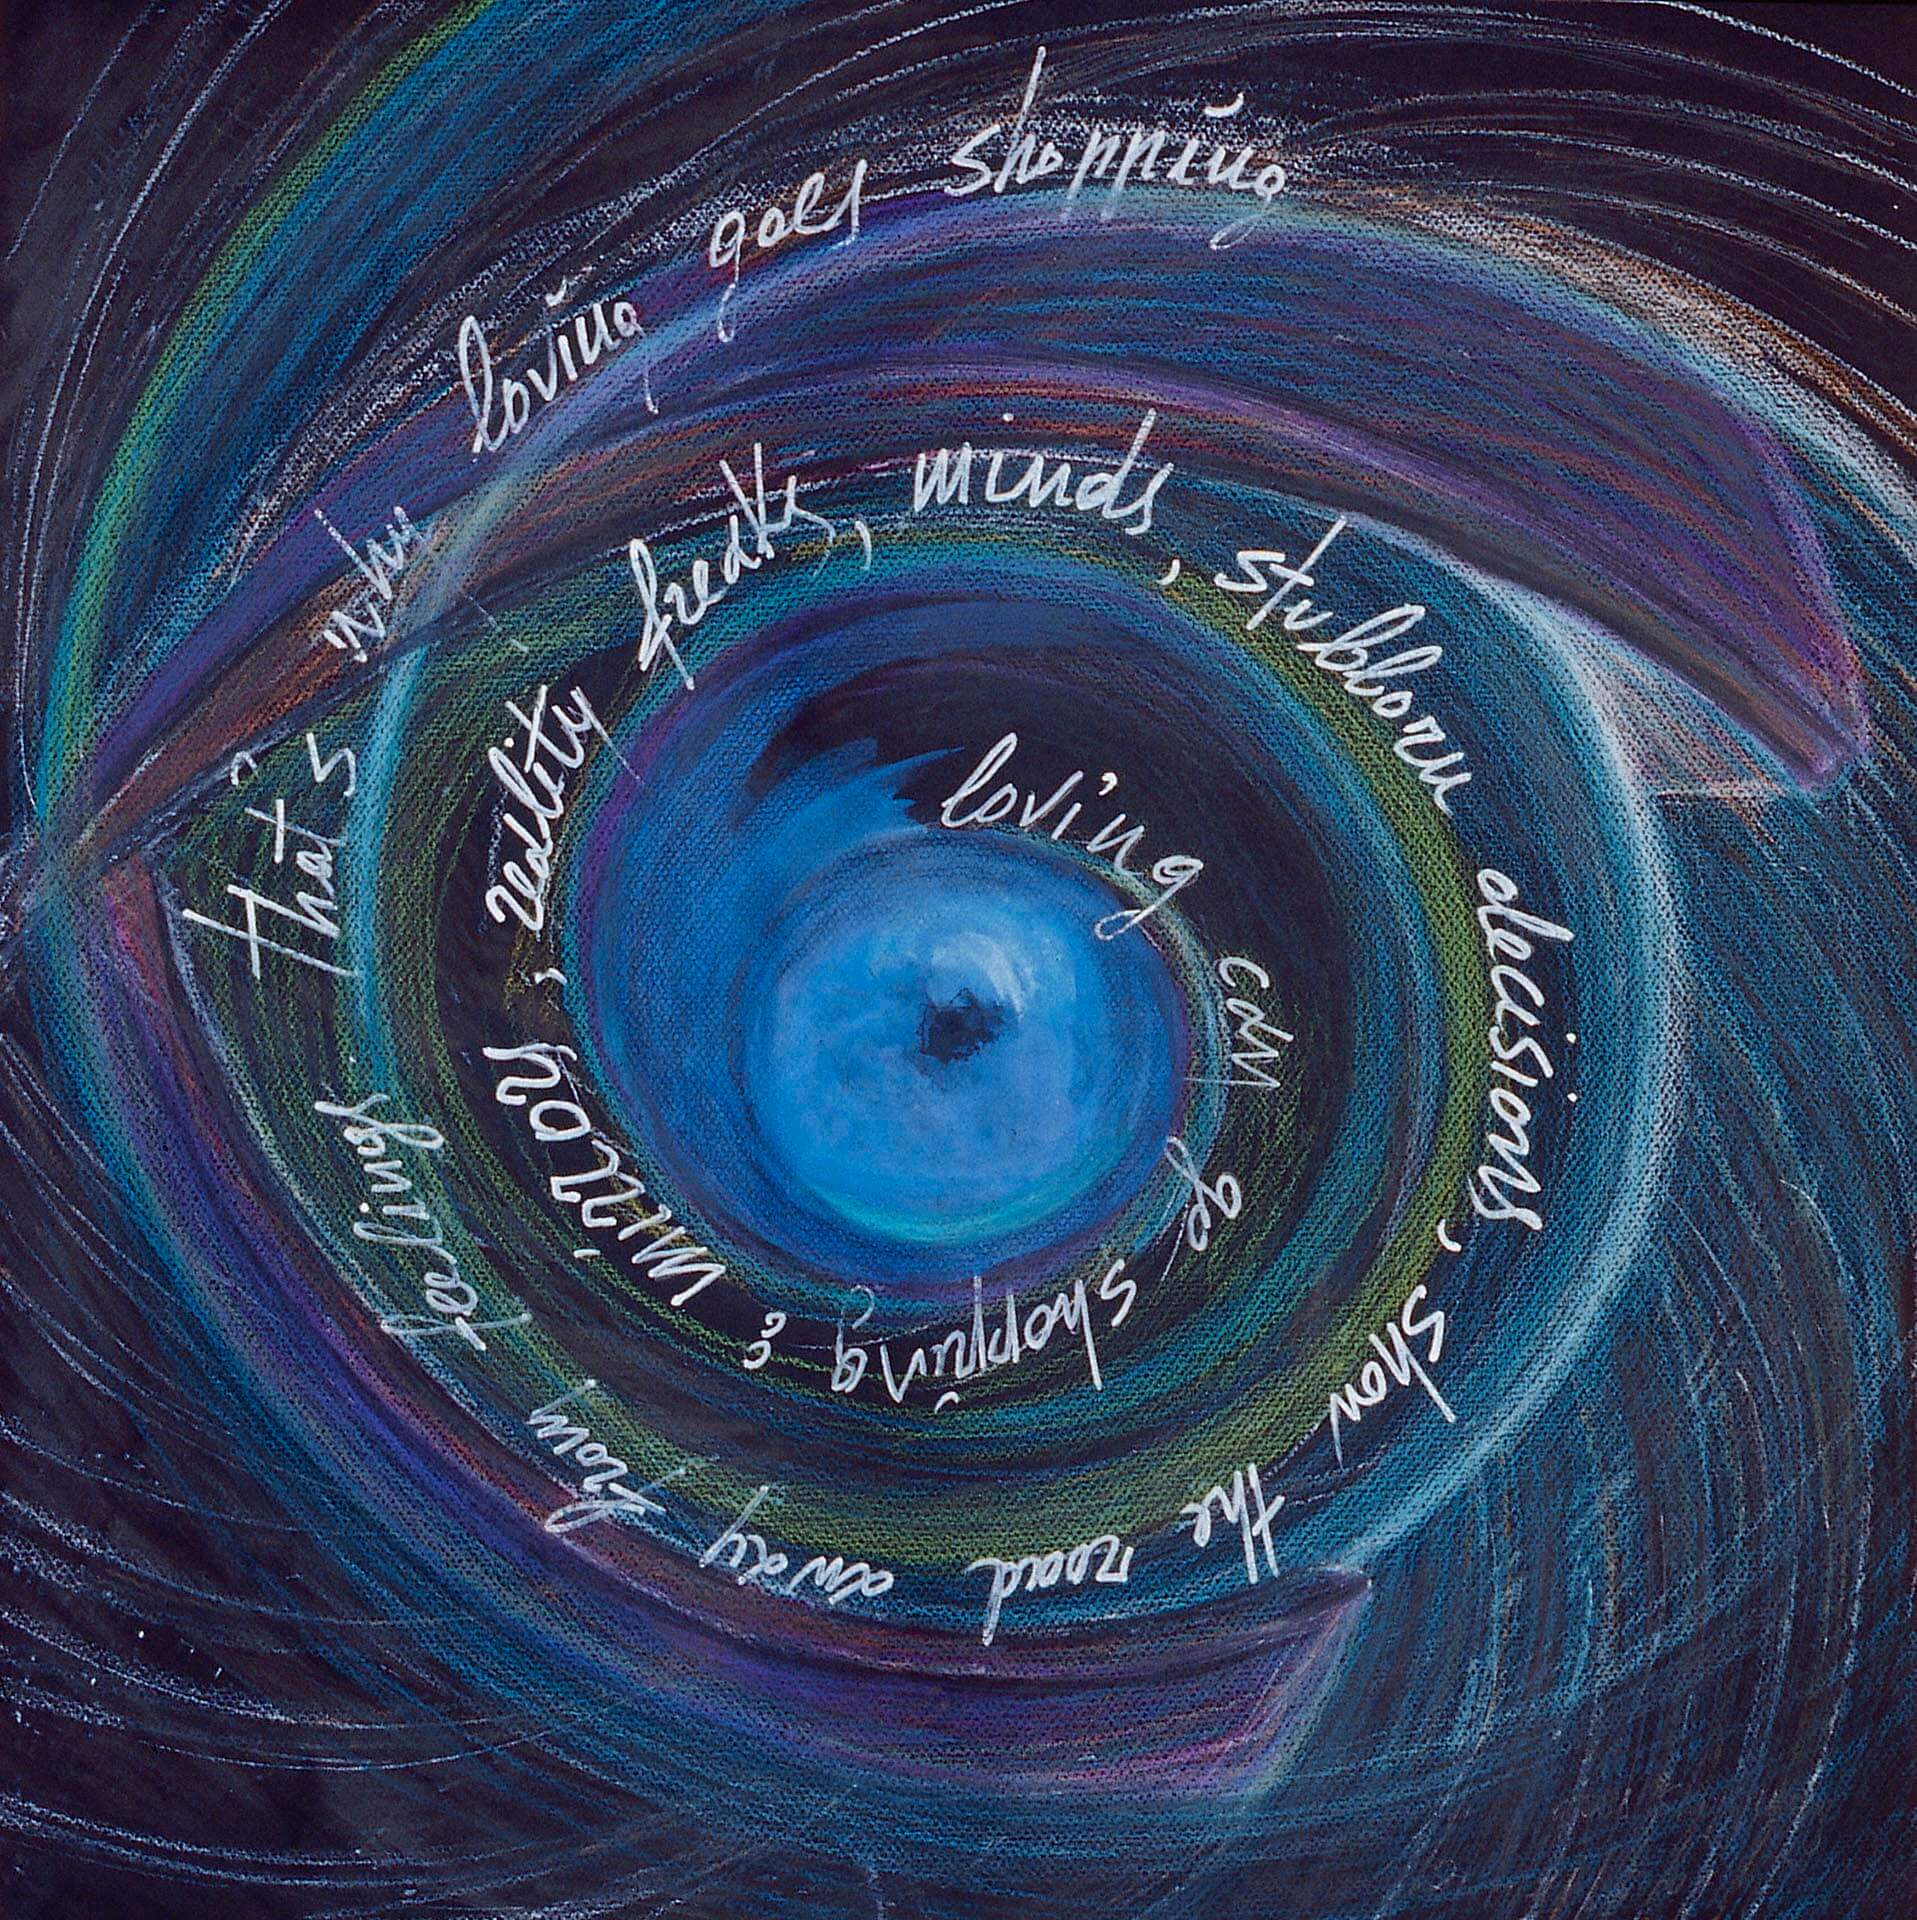 loving can be shopping & mirrors, reality freaks, minds, stubborn decisions, show the road away from feelings. that's why loving goes shopping